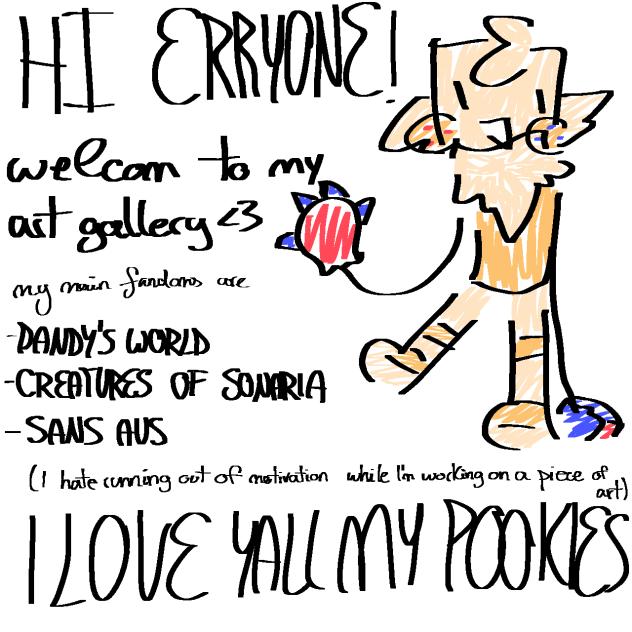 HI ERRYONE!
welcom to my
art gallery <3
my main fandoms are
-DANDY'S WORLD
-CREATURES OF SONARIA
-SANS AUS
(I hate running out of motivation while I'm working on a piece of
art)
I LOVE YALL MY POOKIES